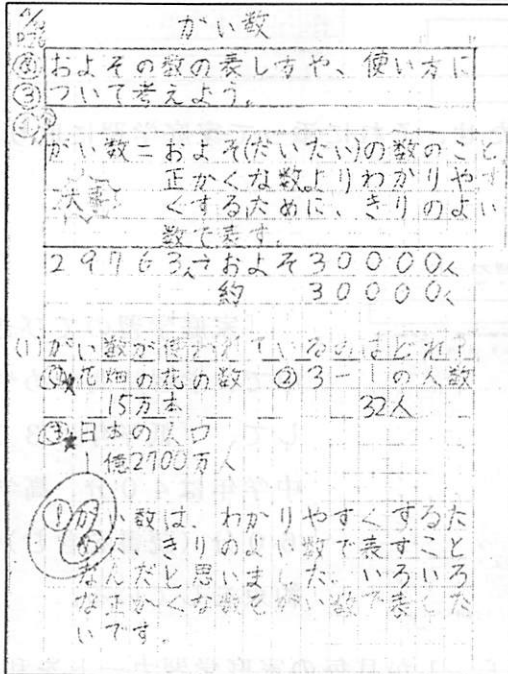 がい数
およその数の表し方や、使い方に
ついて考えよう。
がい数=およそ(だいたい)の数のこと
正かくな数よりわかりやす
大事
くするために、きりのよい
数で表す。
29763人→およそ30000人
約 30000人
(1)がい数が使われているのはどれ?
①花畑の花の数 ②3-1の人数
15万本 32人
③日本の人口
1億2700万人
がい数は、わかりやすくするた
めに、きりのよい数で表すこと
なんだと思いました。いろいろ
な正かくな数をがい数で表した
いです。